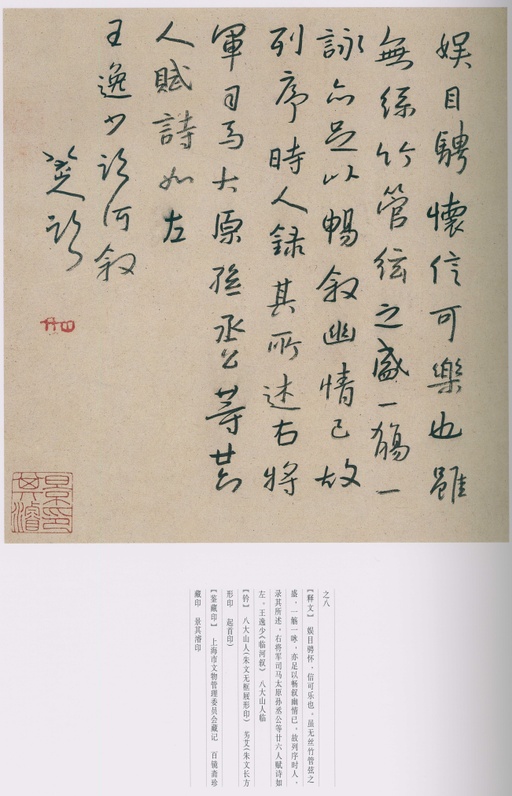 娱目騁懷信可樂也雖
無絲竹管絃之盛一觴一
詠亦足以暢叙幽情已故
列序時人録其所述右將
軍司馬太原孫丞公等廿六
人賦詩如左
王逸少臨河叙
八大山人臨
景其濬印
之八
【释文】 娱目骋怀,信可乐也,虽无丝竹管弦之
盛,一觞一咏,亦足以畅叙幽情已,故列序时人,
录其所述,右将军司马太原孙丞公等廿六人赋诗如
左。王逸少《临河叙》 八大山人临
【钤】 八大山人(朱文无框屐形印) 艾(朱文长方
形印 起首印)
【鉴藏印】 上海市文物管理委员会藏记 百镜斋珍
藏印 景其濬印